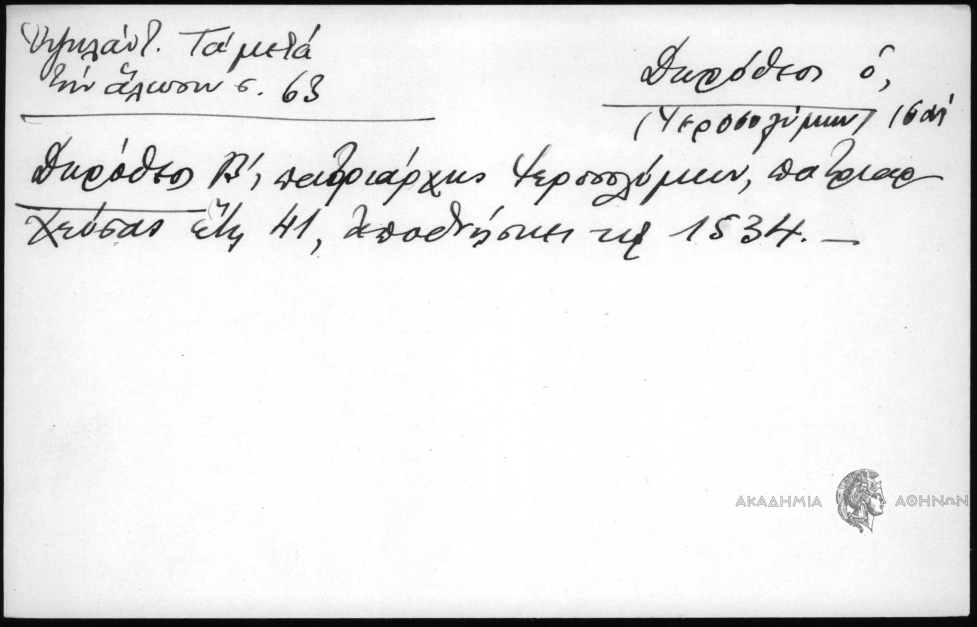 Ὑψηλάντ. Τά μετά
τήν ἅλωσιν σ. 63
Δωρόθεος ὁ,
(Ἱεροσολύμων)
Δωρόθεος Β', πατριάρχης Ἱεροσολύμων, πατριαρ-
χεύσας ἔτη 41, ἀποθνήσκει τῷ 1534. —
ΑΚΑΔΗΜΙΑ ΑΘΗΝΩΝ